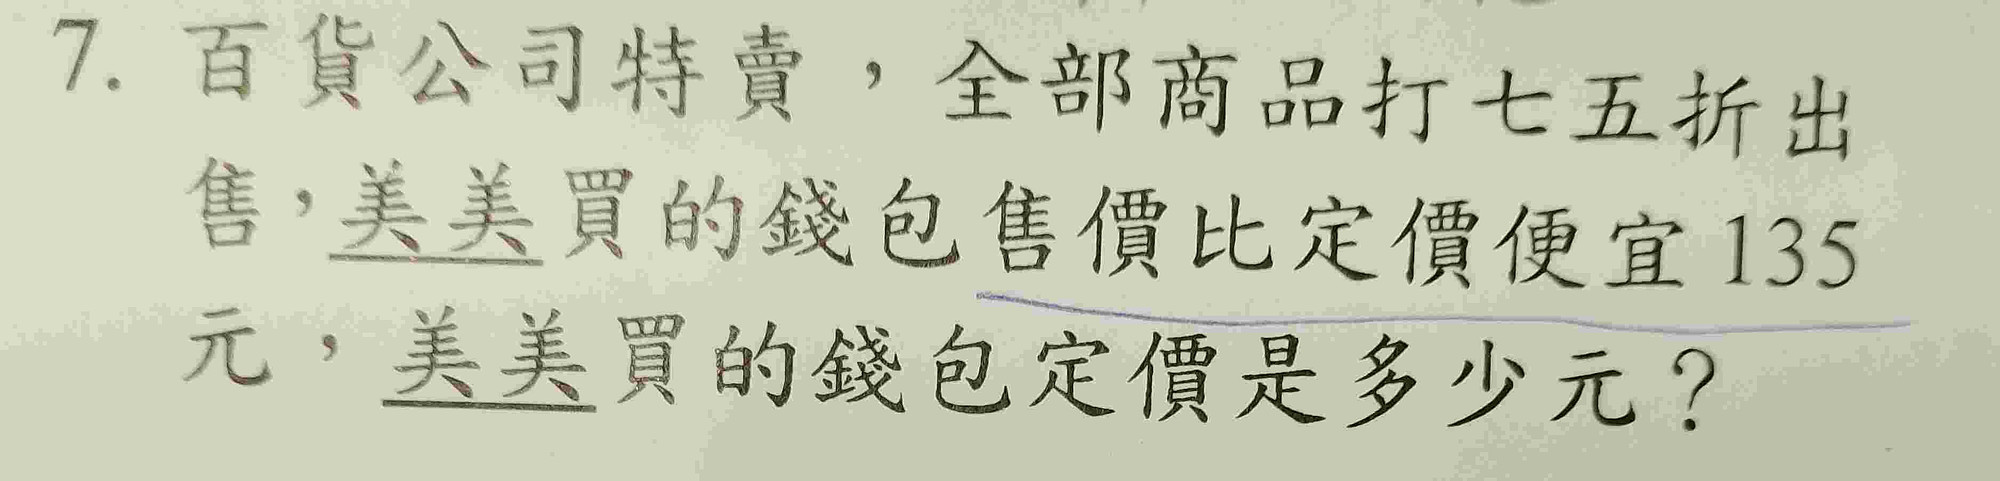 7. 百貨公司特賣，全部商品打七五折出
售，美美買的錢包售價比定價便宜135
元，美美買的錢包定價是多少元？